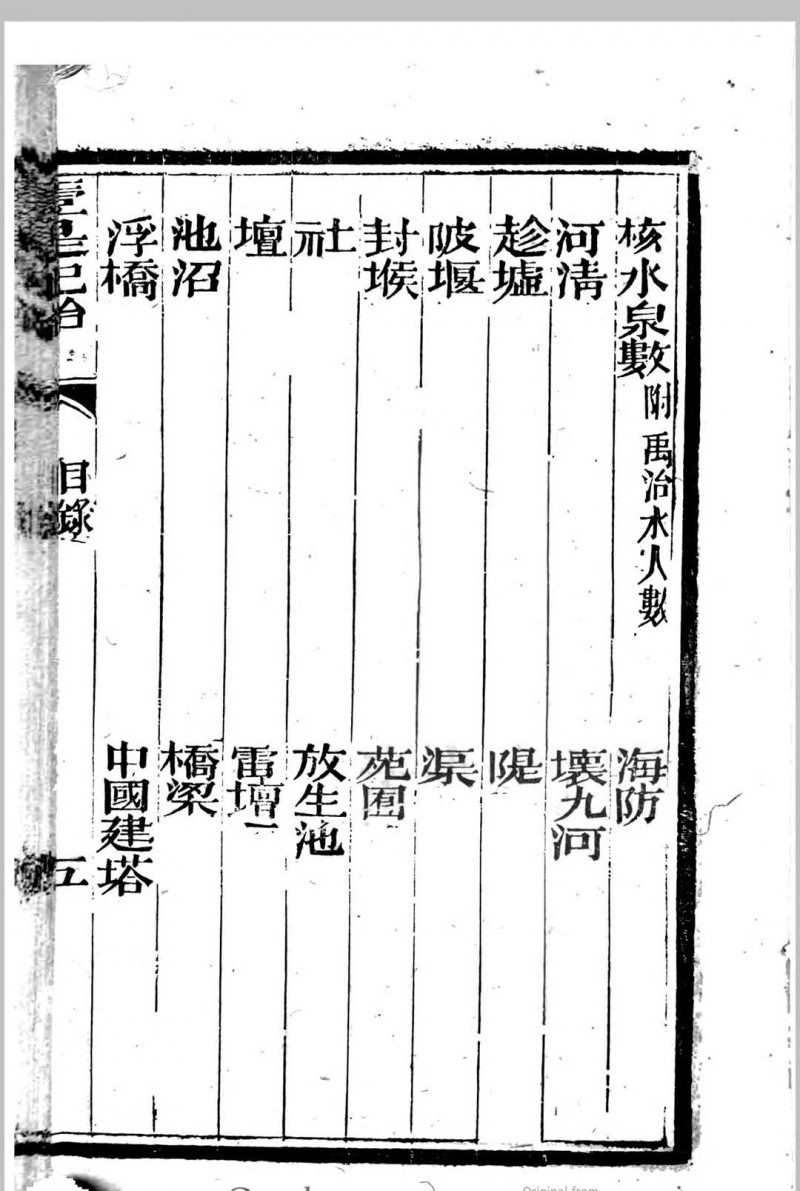 核水泉數附禹治水人數 海防
河淸 壞九河
趁墟 隄
陂堰 渠
封堠 苑囿
社 放生池
壇 雷壇
池沼 橋梁
浮橋 中國建塔
目錄
五
Original from